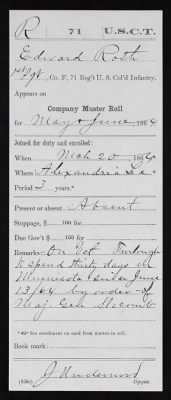 R 71 U.S.C.T.
Edward Roth
1st Sgt, Co. F, 71 Reg't U. S. Col'd Infantry.
Appears on
Company Muster Roll
for May & June, 1864
Joined for duty and enrolled:
When Mch 20, 1864*
Where Alexandria La
Period 3 years.*
Present or absent Absent
Stoppage, $ 100 for
Due Gov't $ 100 for
Remarks: On Vet Furlough
to spend thirty days in
Minnesota since June
13/64 by order of
Maj. Gen Slocomb
*@ See enrollment on card from muster-in roll.
Book mark:
J Underwood
(356) Copyist.